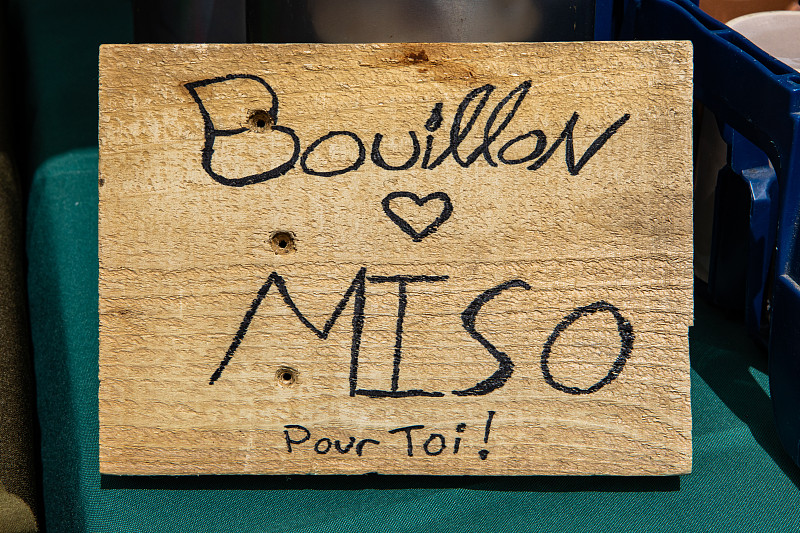 Bouillon
♡
MISO
Pour Toi!